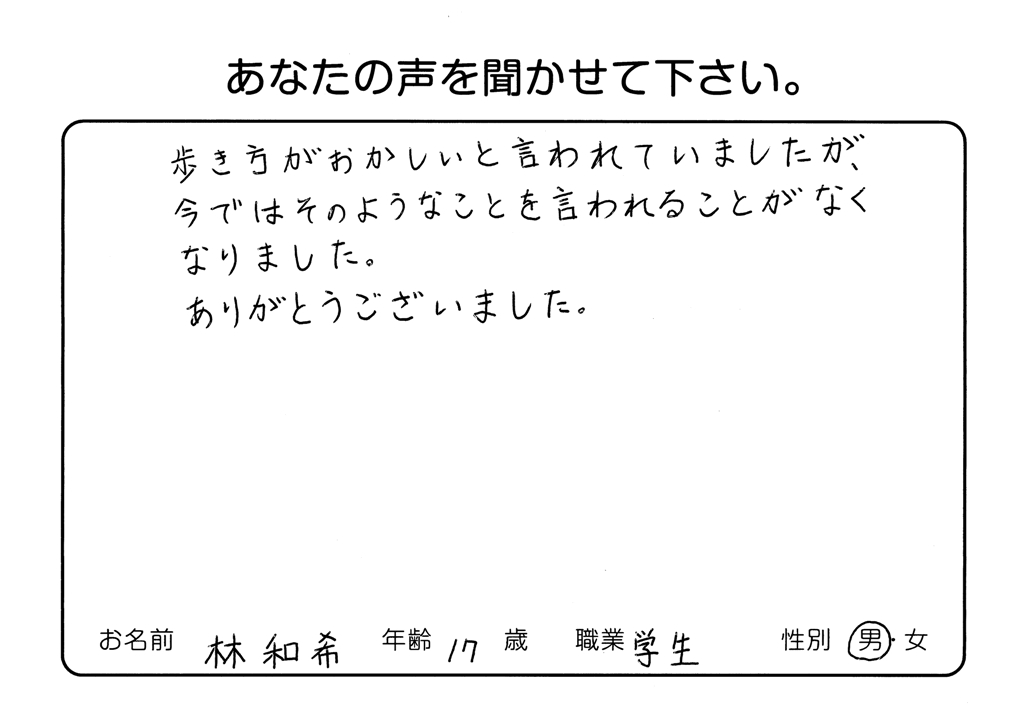 あなたの声を聞かせて下さい。
歩き方がおかしいと言われていましたが、
今ではそのようなことを言われることがなく
なりました。
ありがとうございました。
お名前 林 和希 年齢 17 歳 職業 学生 性別 男・女